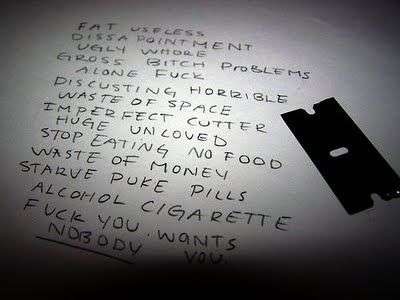 FAT USELESS
DISSAPOINTMENT
UGLY WHORE
GROSS BITCH PROBLEMS
ALONE FUCK
DISCUSTING HORRIBLE
WASTE OF SPACE
IMPERFECT CUTTER
HUGE UNLOVED
STOP EATING NO FOOD
WASTE OF MONEY
STARVE PUKE PILLS
ALCOHOL CIGARETTE
FUCK YOU. WANTS
NOBODY YOU.